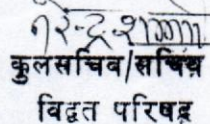 कुलसचिव/सचिव
विद्वत परिषद्